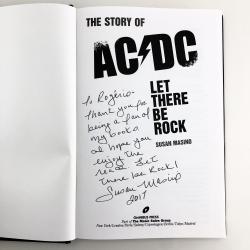 THE STORY OF
AC/DC
LET
THERE
BE
ROCK
SUSAN MASINO
To Rogério-
thank you for
being a fan of
my books.
I hope you
enjoy the
read. Let
there be Rock!
Susan Masino
2017
OMNIBUS PRESS
Part of The Music Sales Group
New York/London/Paris/Sydney/Copenhagen/Berlin/Tokyo/Madrid